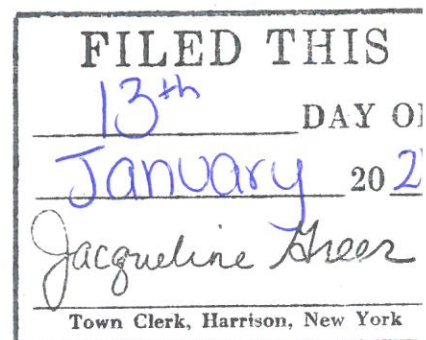 FILED THIS
13th DAY O
January 20 2
Jacqueline Greer
Town Clerk, Harrison, New York